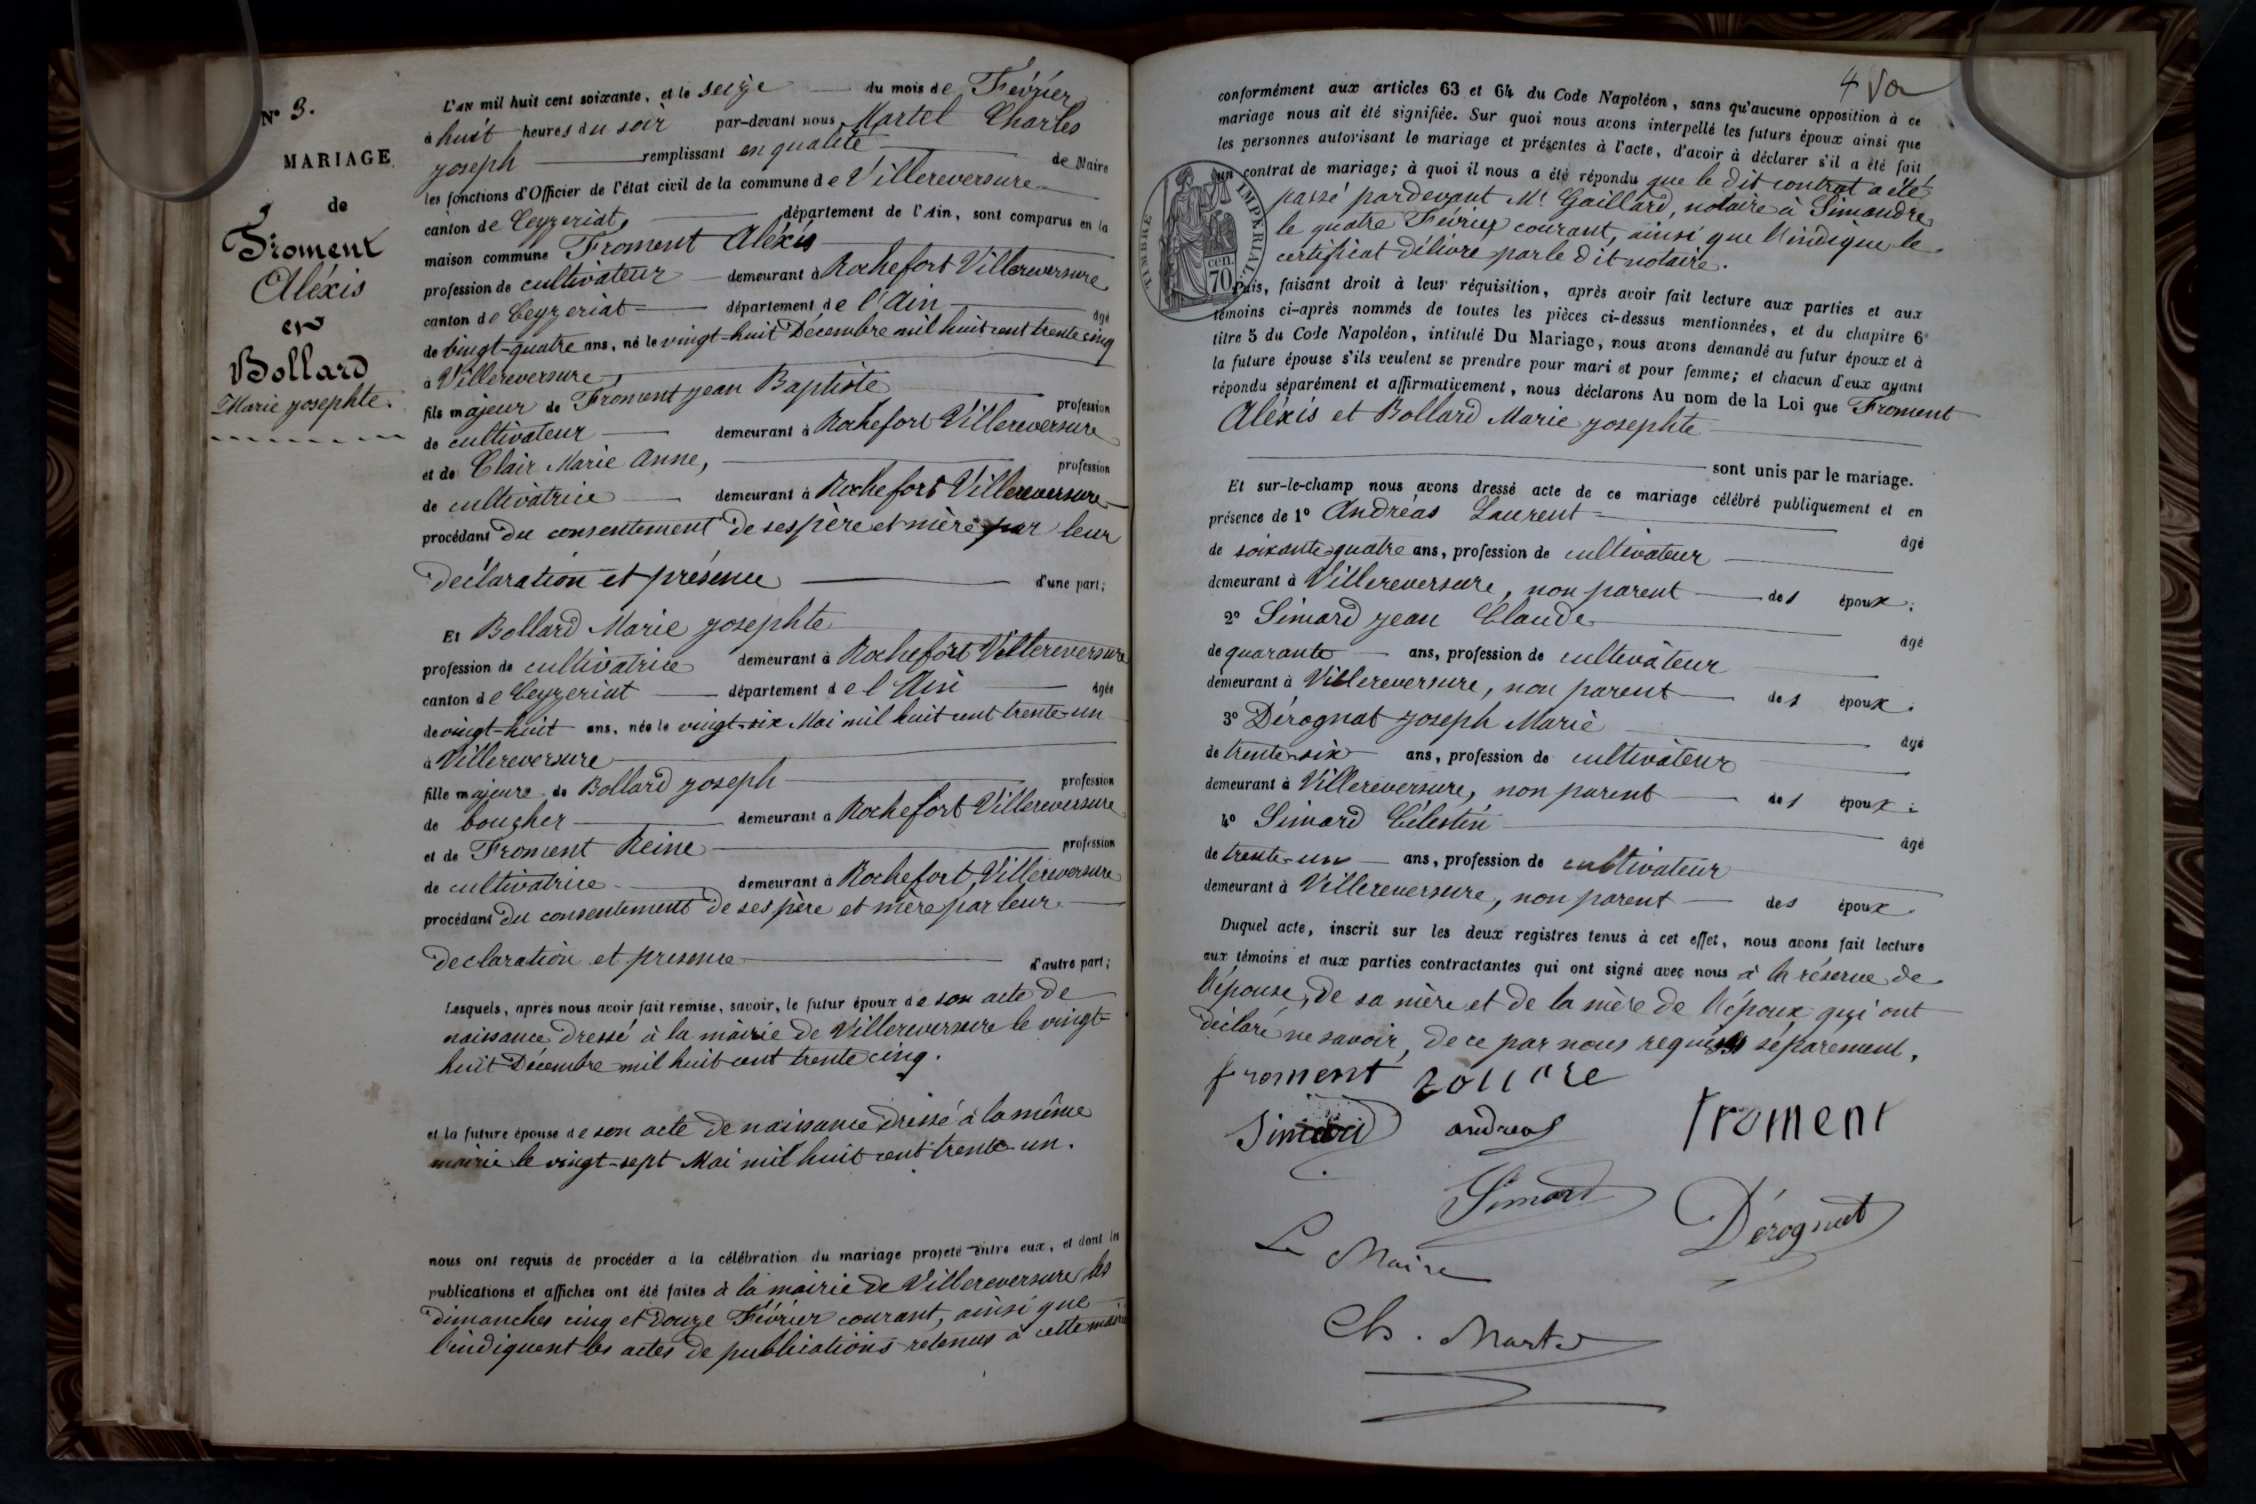 N° 3.
MARIAGE
de
Froment
Aléxis
et
Bollard
Marie Josephte.
L'AN mil huit cent soixante, et le seize du mois de Février
à huit heures du soir par-devant nous Martel Charles
Joseph remplissant en qualité de Maire
les fonctions d'Officier de l'état civil de la commune de Villereversure
canton de Ceyzeriat, département de l'Ain, sont comparus en la
maison commune Froment Aléxis
profession de cultivateur demeurant à Rochefort Villereversure
canton de Ceyzeriat département de l'Ain âgé
de vingt-quatre ans, né le vingt-huit Décembre mil huit cent trente cinq
à Villereversure,
fils majeur de Froment Jean Baptiste profession
de cultivateur demeurant à Rochefort Villereversure
et de Clair Marie Anne, profession
de cultivatrice demeurant à Rochefort Villereversure
procédant du consentement de ses père et mère par leur
déclaration et présence d'une part;
Et Bollard Marie Josephte
profession de cultivatrice demeurant à Rochefort Villereversure
canton de Ceyzeriat département de l'Ain âgée
de vingt-huit ans, née le vingt-six Mai mil huit cent trente-un
à Villereversure
fille majeure de Bollard Joseph profession
de boucher demeurant à Rochefort Villereversure
et de Froment Reine profession
de cultivatrice demeurant à Rochefort, Villereversure
procédant du consentement de ses père et mère par leur
déclaration et présence d'autre part;
Lesquels, après nous avoir fait remise, savoir, le futur époux de son acte de
naissance dressé à la mairie de Villereversure le vingt-
huit Décembre mil huit cent trente cinq.
et la future épouse de son acte de naissance dressé à la même
mairie le vingt-sept Mai mil huit cent trente-un.
nous ont requis de procéder à la célébration du mariage projeté entre eux, et dont les
publications et affiches ont été faites à la mairie de Villereversure les
dimanches cinq et douze Février courant, ainsi que
l'indiquent les actes de publications retenus à cette mairie
4
conformément aux articles 63 et 64 du Code Napoléon, sans qu'aucune opposition à ce
mariage nous ait été signifiée. Sur quoi nous avons interpellé les futurs époux ainsi que
les personnes autorisant le mariage et présentes à l'acte, d'avoir à déclarer s'il a été fait
un contrat de mariage; à quoi il nous a été répondu que le dit contrat a été
passé pardevant Mt Gaillard, notaire à Simandre
le quatre Février courant, ainsi que l'indique le
certificat délivré par le dit notaire.
TIMBRE IMPERIAL
70 cen.
Puis, faisant droit à leur réquisition, après avoir fait lecture aux parties et aux
témoins ci-après nommés de toutes les pièces ci-dessus mentionnées, et du chapitre 6e
titre 5 du Code Napoléon, intitulé Du Mariage, nous avons demandé au futur époux et à
la future épouse s'ils veulent se prendre pour mari et pour femme; et chacun d'eux ayant
répondu séparément et affirmativement, nous déclarons Au nom de la Loi que Froment
Aléxis et Bollard Marie Josephte
sont unis par le mariage.
Et sur-le-champ nous avons dressé acte de ce mariage célébré publiquement et en
présence de 1° Andréas Laurent âgé
de soixante-quatre ans, profession de cultivateur
demeurant à Villereversure, non parent des époux;
2° Simard Jean Claude âgé
de quarante ans, profession de cultivateur
demeurant à Villereversure, non parent des époux.
3° Dérognat Joseph Marie âgé
de trente-six ans, profession de cultivateur
demeurant à Villereversure, non parent des époux;
4° Simard Célestin âgé
de trente-un ans, profession de cultivateur
demeurant à Villereversure, non parent des époux.
Duquel acte, inscrit sur les deux registres tenus à cet effet, nous avons fait lecture
aux témoins et aux parties contractantes qui ont signé avec nous à la réserve de
l'épouse, de sa mère et de la mère de l'époux qui ont
déclaré ne savoir, de ce par nous requises séparément.
froment
Simard andreas froment
Simard Dérognat
Le Maire
Ch. Martel